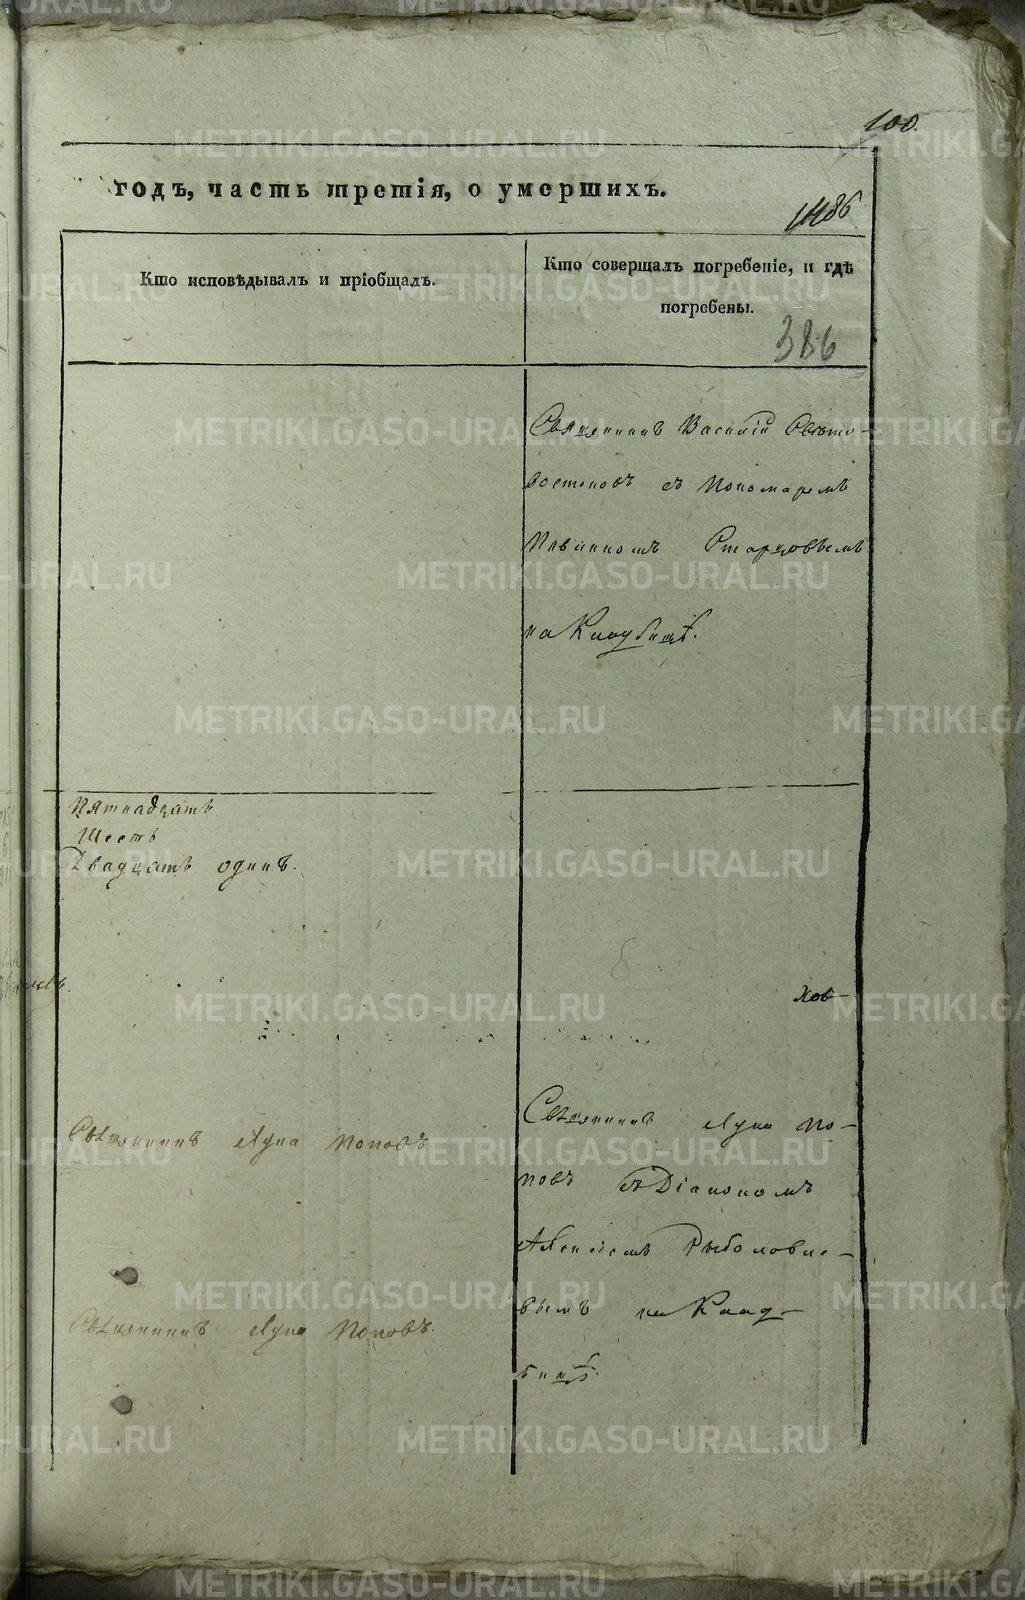 100.
годъ, часть третія, о умершихъ.
Кто исповѣдывалъ и пріобщалъ.
Кто совершалъ погребеніе, и гдѣ
погребены.
386
Священникъ Василій Свѣто-
востоковъ съ Пономаремъ
Иваннномъ Старцовымъ
на Кладбищѣ.
Пятнадцать
Шесть
Двадцать одинъ.
Хов-
Священникъ Лука Поповъ
Священникъ Лука По-
повъ съ Діакономъ
Алексіемъ Рыболовле-
вымъ на Клад-
бищѣ.
Священникъ Лука Поповъ.
METRIKI.GASO-URAL.RU